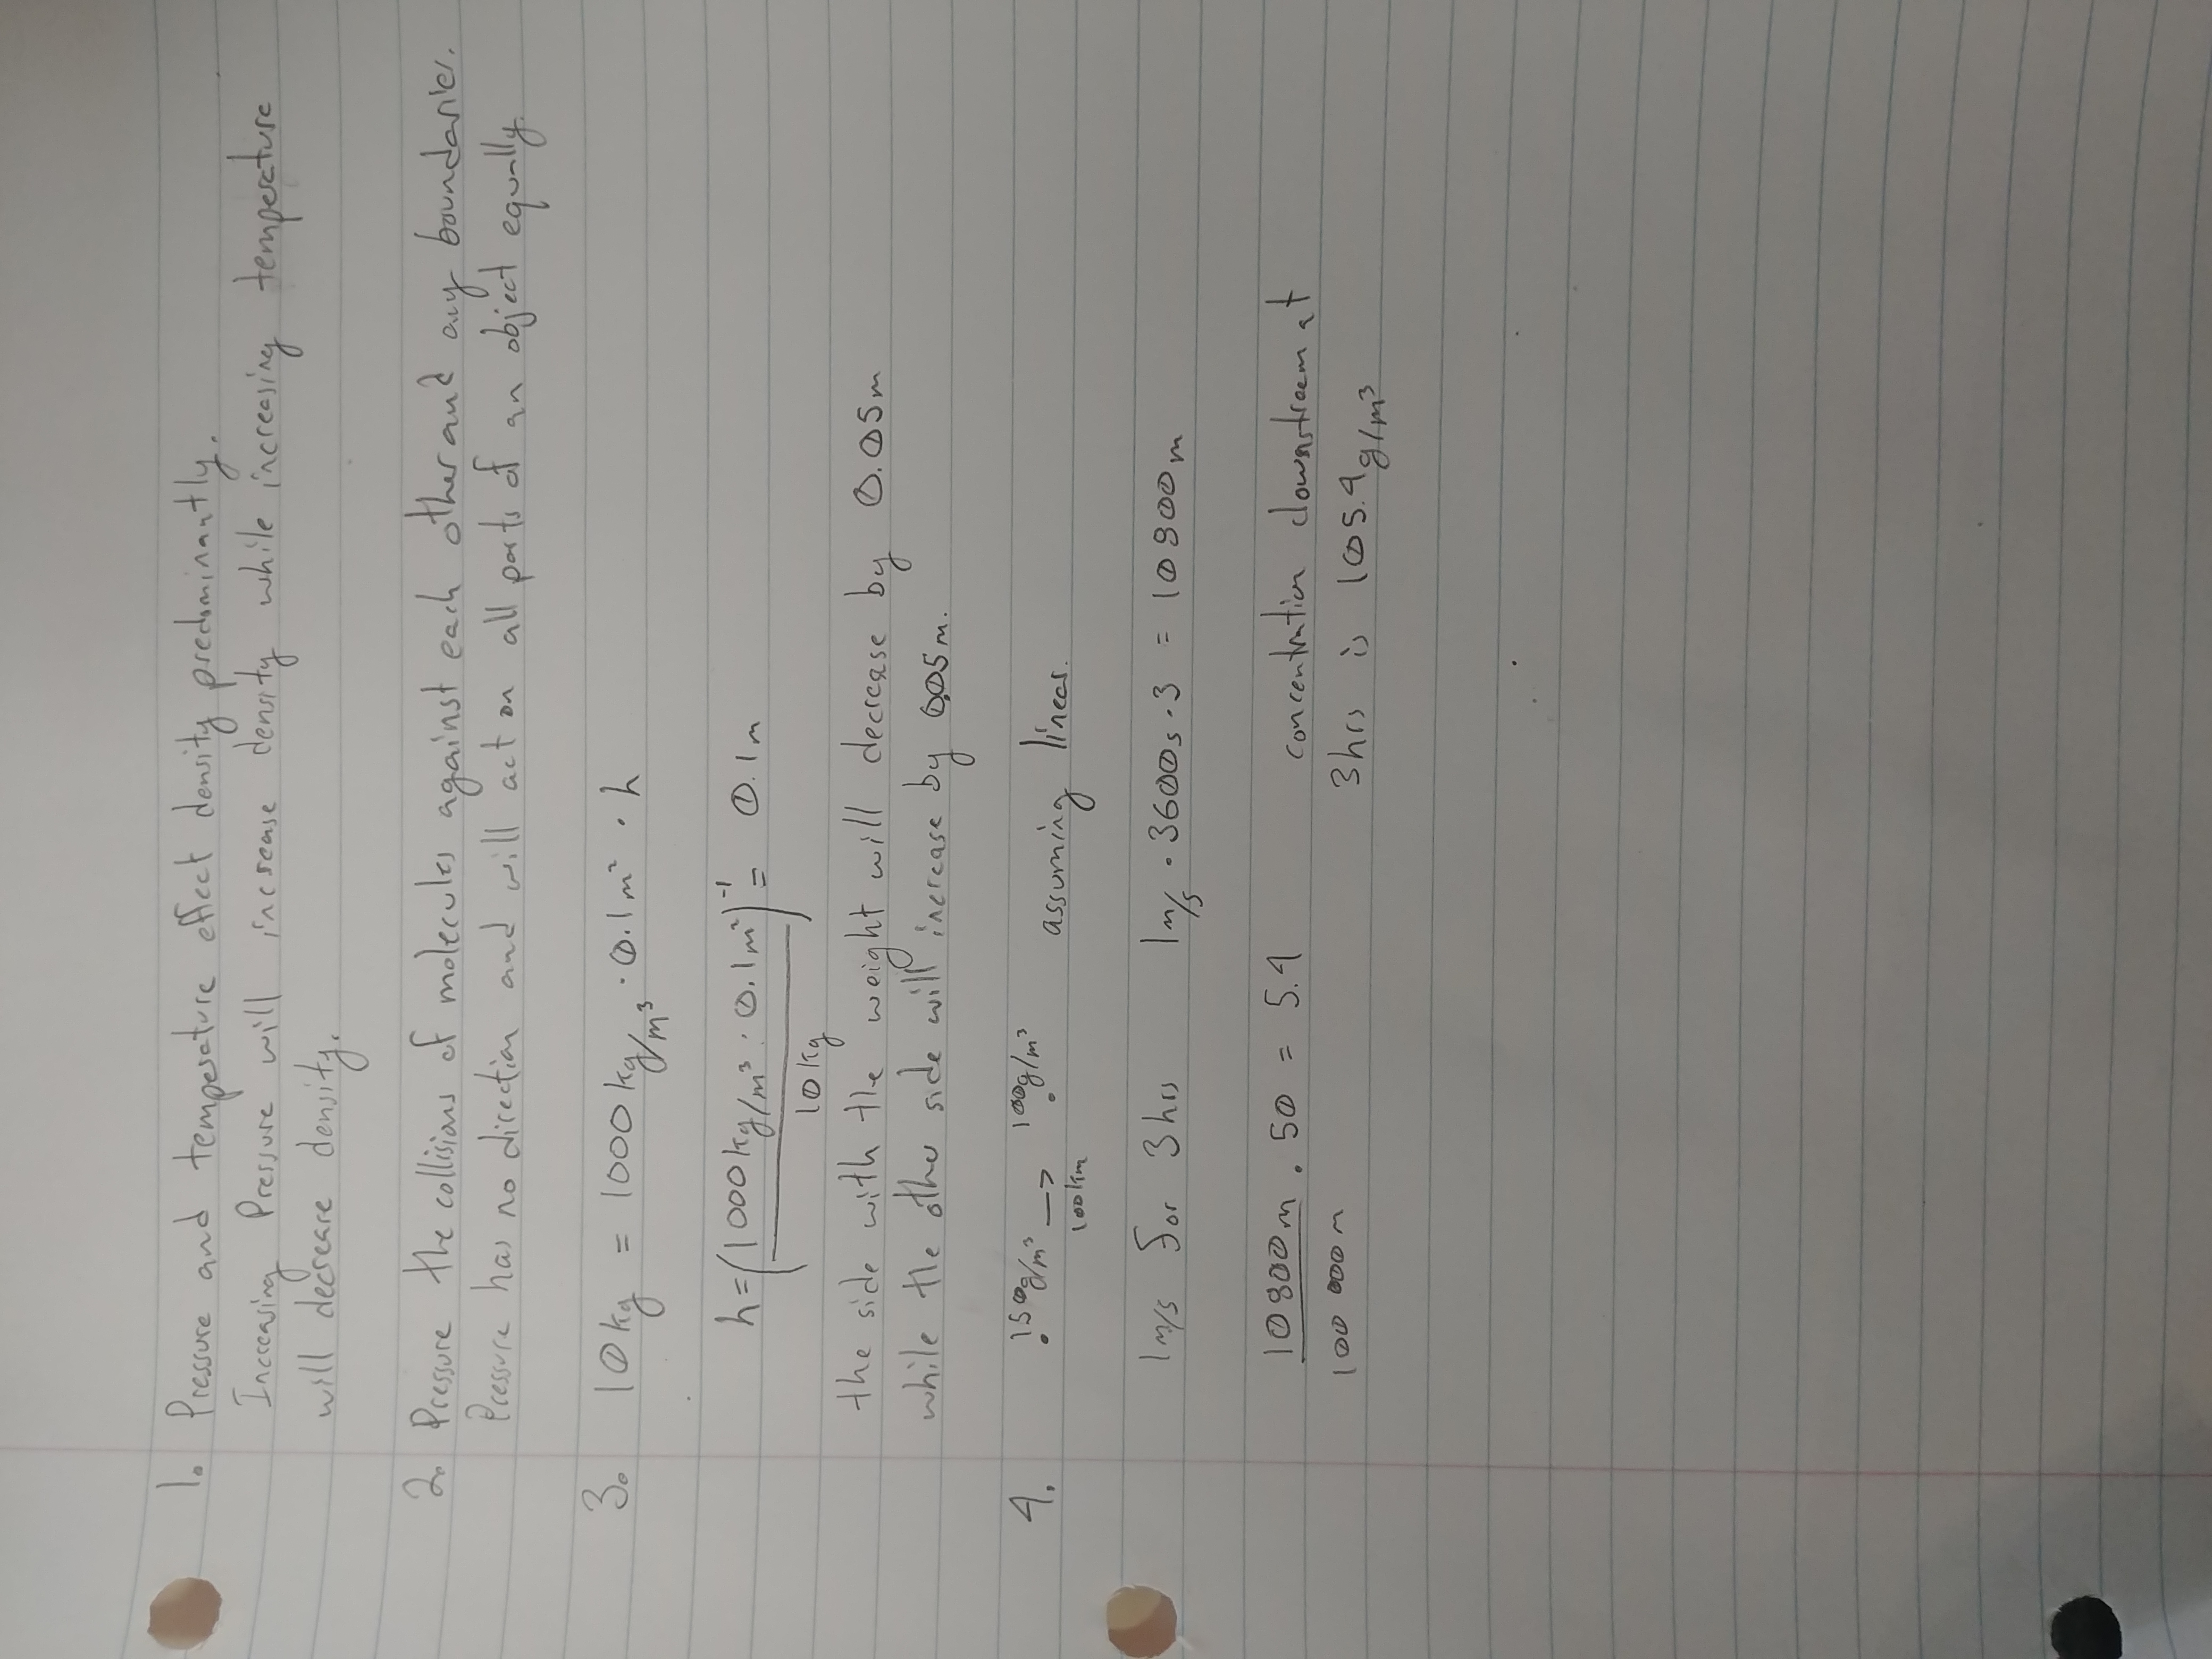 1. Pressure and temperature effect density predominantly.
Increasing Pressure will increase density while increasing temperature
will decrease density.
2. Pressure the collisions of molecules against each other and any boundaries.
Pressure has no direction and will act on all parts of an object equally.
3. 10kg = 1000 kg/m³ · 0.1m² · h
h = (1000kg/m³ · 0.1m² / 10kg)⁻¹ = 0.1m
the side with the weight will decrease by 0.05m
while the other side will increase by 0.05m.
4. 150g/m³ → 100g/m³ assuming linear.
100km
1m/s for 3hrs 1m/s · 3600s · 3 = 10800m
10800m / 100 000m · 50 = 5.4 concentration downstream at
3hrs is 105.4g/m³